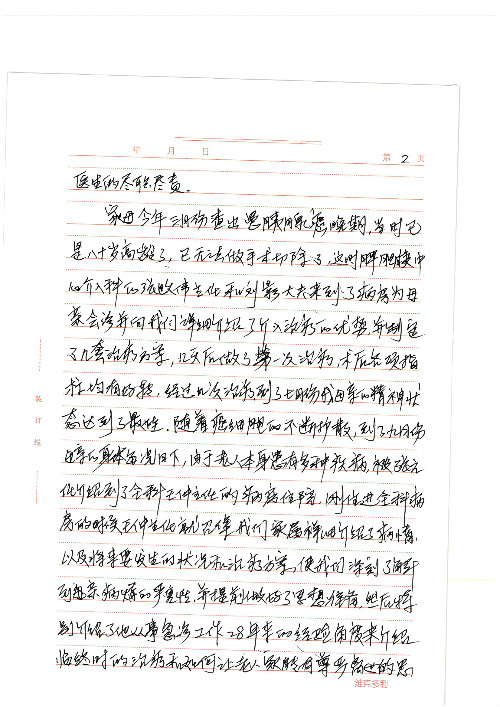 年 月 日
第 2 页
医生的尽职尽责。
家母今年三月份查出患胰腺癌晚期,当时已
是八十岁高龄了,已无法做手术切除了,这时肝胆胰中
心介入科的 主任和刘影大夫来到了病房为母
亲会诊并向我们详细介绍了介入治疗的优势并制定
了几套治疗方案,几天后做了第一次治疗,术后各项指
标均有好转,经过几次治疗到了七月份我母亲的精神状
态达到了最佳。随着癌细胞的不断扩散,到了九月份
母亲的身体每况日下,由于老人本身患有多种疾病,被
介绍到了全科王仲主任的病房住院。刚住进全科病
房的时候王仲主任就召集我们家属详细介绍了病情,
以及将来要发生的状况和治疗方案,使我们深刻了解
到母亲病情的严重性,并提前做好了思想准备。然后特
别介绍了他从事急诊工作28年来的经验角度来介绍
临终时的治疗和如何让老人家能有尊严 的
装订线
维克多利